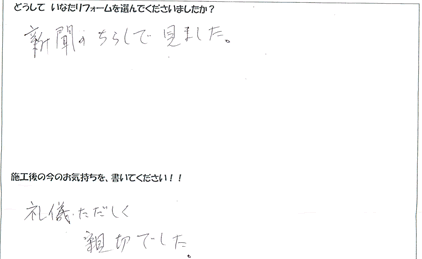 どうして いなたリフォームを選んでくださいましたか？
新聞のちらしで見ました。
施工後の今のお気持ちを、書いてください！！
礼儀ただしく
親切でした。